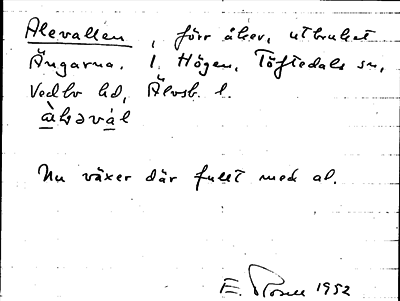 Alevallen, förr åker, utbruket
Ängarna. 1 Högen, Töftedals sn,
Vedbo hd, Älvsb. l.
àləvál
Nu växer där fullt med al.
E. Rosell 1952